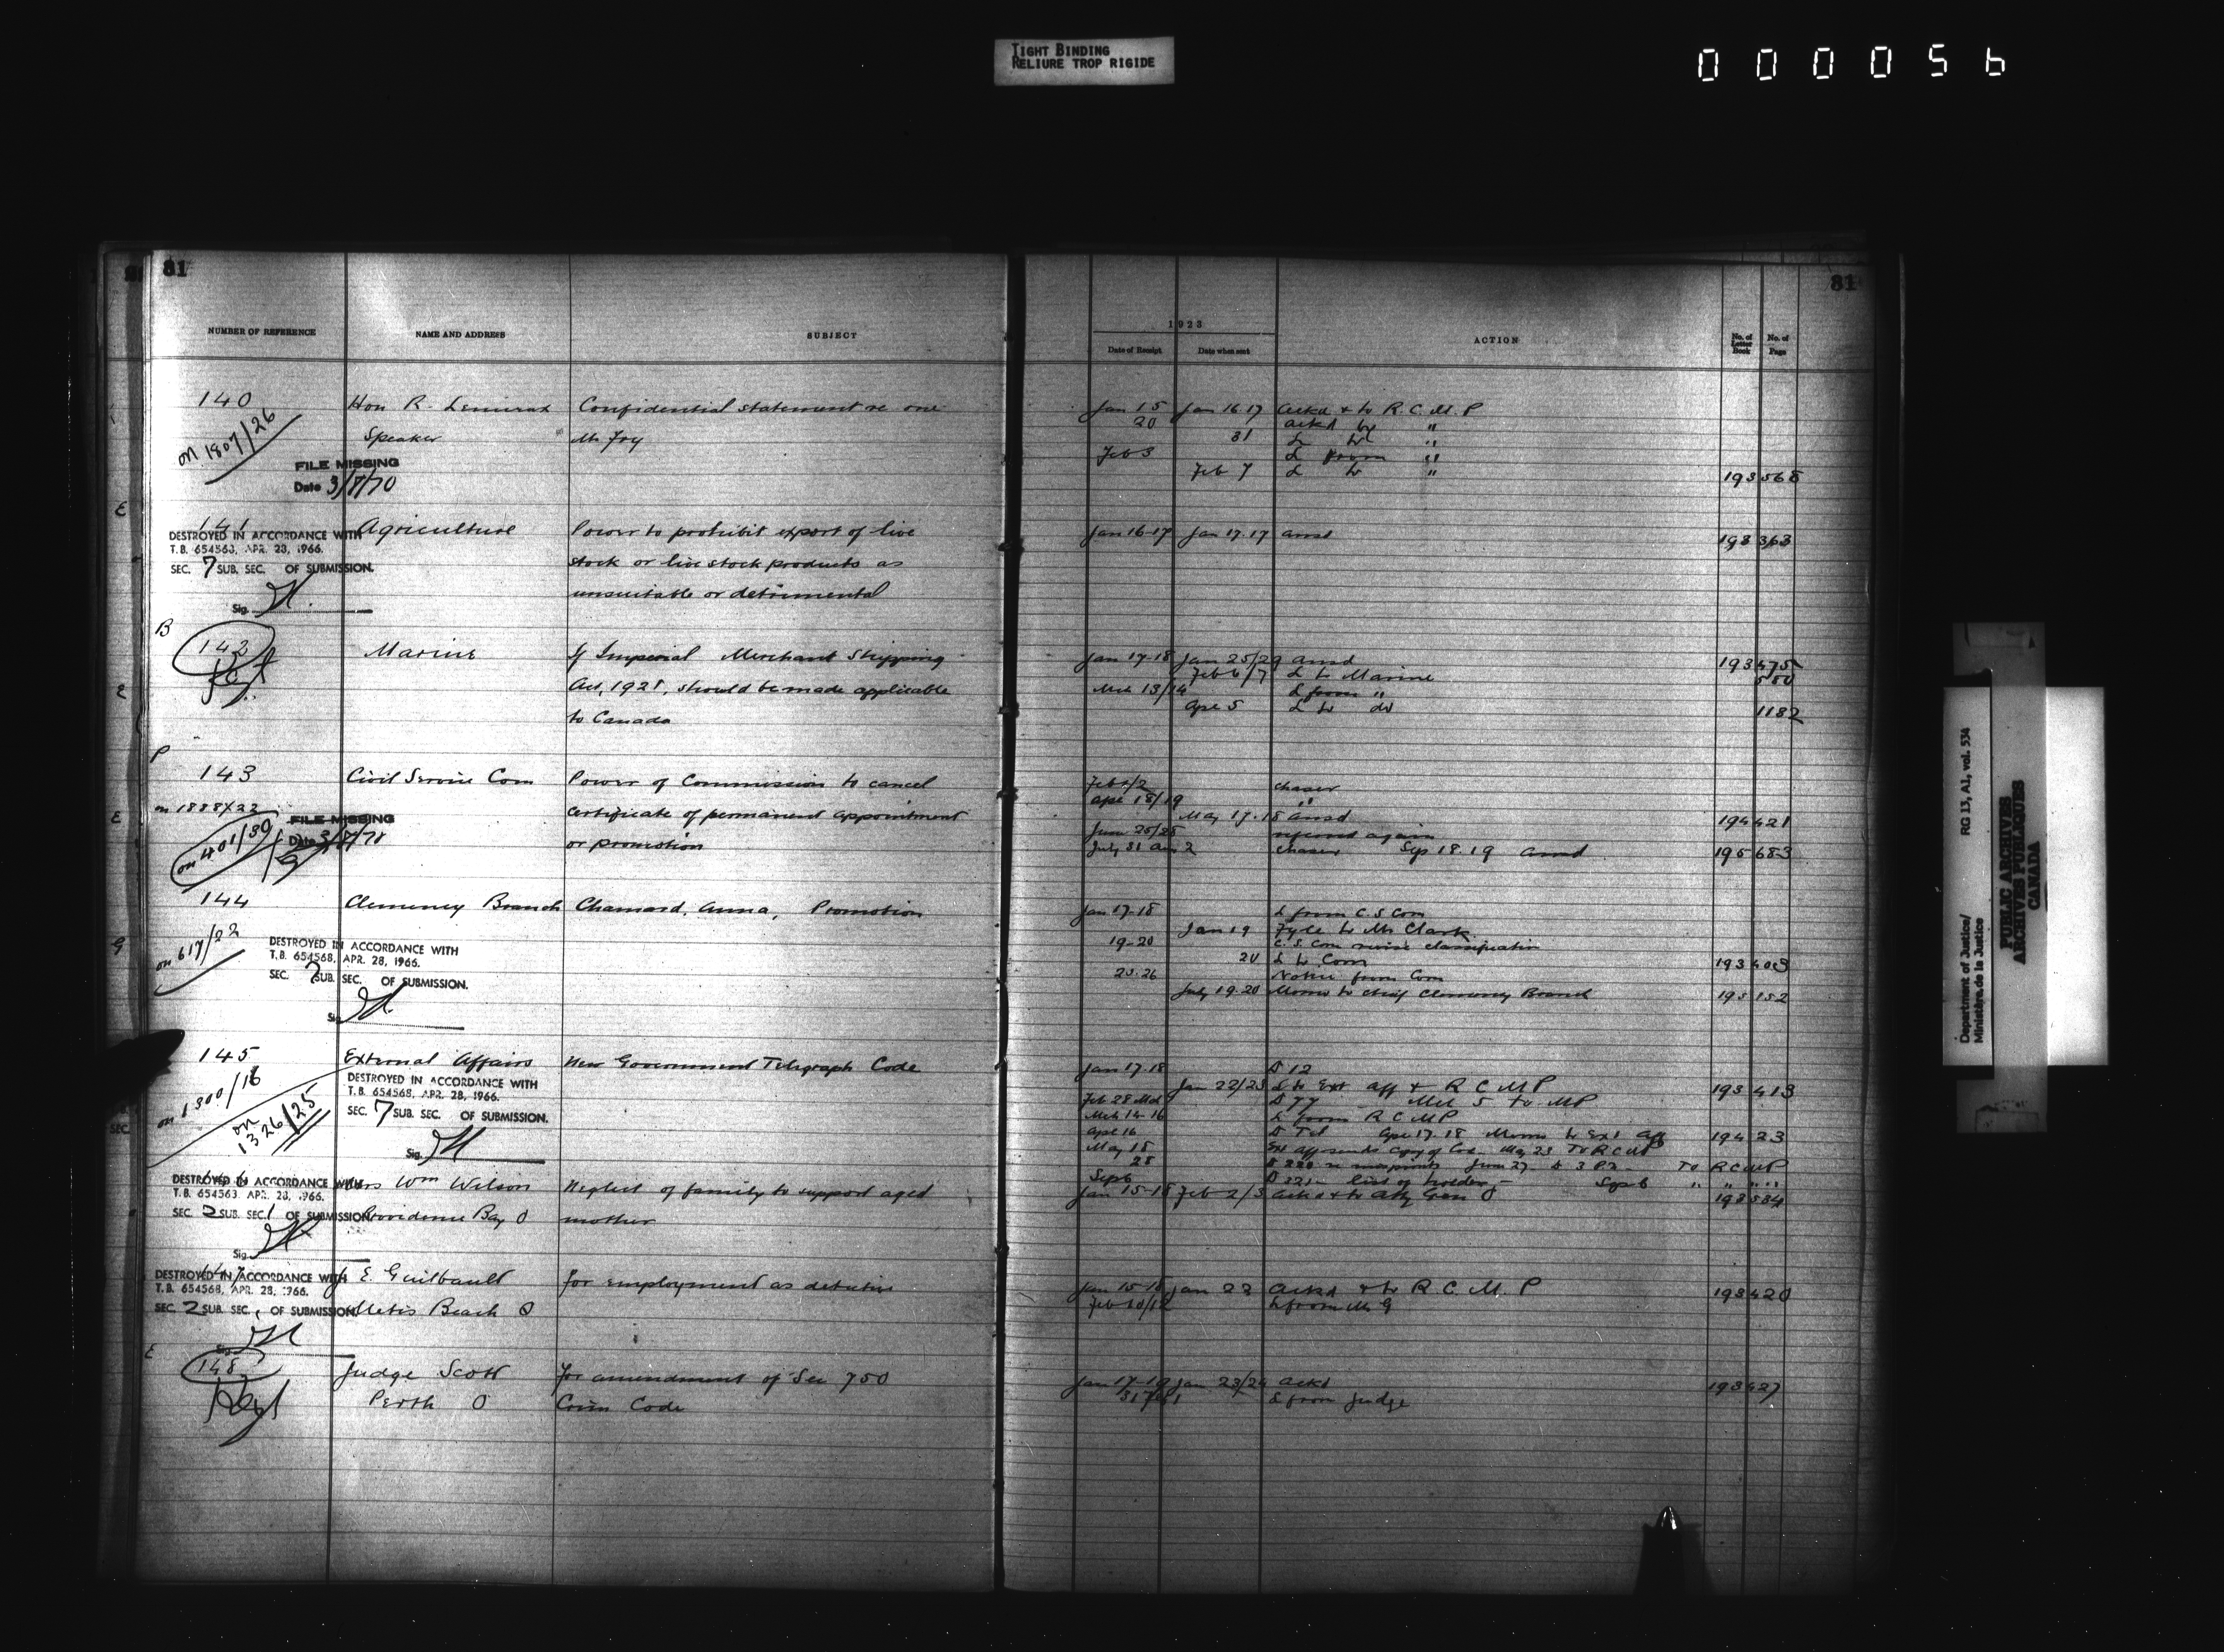 TIGHT BINDING
RELIURE TROP RIGIDE
000056
31
NUMBER OF REFERENCE NAME AND ADDRESS SUBJECT
140 Hon R. Lemieux Confidential statement re one
on 1807/26 Speaker Mr Foy
FILE MISSING
Date 3/7/70
E
141 Agriculture Power to prohibit export of live
DESTROYED IN ACCORDANCE WITH
T.B. 654563, APR. 28, 1966.
SEC. 7 SUB. SEC. OF SUBMISSION.
stock or live stock products as
unsuitable or detrimental
Sig.
B
142 Marine If Imperial Merchant Shipping
E Act, 1921, should be made applicable
to Canada
P
143 Civil Service Com Power of Commission to cancel
on 1888/22
E certificate of permanent appointment
FILE MISSING
on 401/30 Date 3/7/70
or promotion
144 Clemency Branch Chamard, Anna, Promotion
on 617/22
G
DESTROYED IN ACCORDANCE WITH
T.B. 654568, APR. 28, 1966.
SEC. 7 SUB. SEC. OF SUBMISSION.
Sig.
145 External Affairs New Government Telegraph Code
on 1300/18
on 1326/25
DESTROYED IN ACCORDANCE WITH
T.B. 654568, APR. 28, 1966.
SEC. 7 SUB. SEC. OF SUBMISSION.
Sig.
146 Mrs Wm Wilson Neglect of family to support aged
DESTROYED IN ACCORDANCE WITH
T.B. 654563, APR. 28, 1966.
SEC. 2 SUB. SEC. 1 OF SUBMISSION
Providence Bay O mother
Sig.
147 E. Guilbault for employment as detective
DESTROYED IN ACCORDANCE WITH
T.B. 654568, APR. 28, 1966.
SEC. 2 SUB. SEC. OF SUBMISSION
Metis Beach Q
E
148 Judge Scott for amendment of Sec 750
Perth O Crim Code
31
1923
Date of Receipt Date when sent ACTION No. of Letter Book No. of Page
Jan 15 Jan 16.17 Ackd & to R.C.M.P
20 ackd by "
31 L to "
Feb 3 L from "
Feb 7 L to " 193 568
Jan 16-17 Jan 17.17 ansd 193 363
Jan 17-18 Jan 25/29 ansd 193 475
Feb 6/7 L to Marine 550
Mch 13/14 L from "
Apr 5 L to do 1182
Feb 1/2 chaser
Apr 18/19 "
May 17.18 ansd 194 421
June 25/25 referred again
July 31 Aug 2 chaser Sep 18.19 ansd 195 683
Jan 17-18 L from C.S Com
Jan 19 Fyle to Mr Clark
19-20 C.S. Com revise classification
20 L to Com 193 403
25-26 Notice from Com
July 19-20 Memo to chief Clemency Branch 195 152
Jan 17.18 D 12
Jan 22/23 L to Ext Aff & R C M P 193 413
Feb 28 Mch D 77 Mch 5 to MP
Mch 14-16 L from R C M P
Apr 16 D Tel Apr 17.18 Memo to Ext Aff 194 23
May 18 Ext Aff sends copy of Code May 23 To R C M P
28 To R C M P
Sept 6 list of holders Sep 6 " " " "
Jan 15-18 Feb 2/3 Ackd & to Atty Gen O 193 584
Jan 15-18 Jan 23 Ackd & to R. C. M. P 193 420
Feb 10/12 L from Mr G
Jan 17-19 Jan 23/24 Ackd 193 427
L from Judge
Department of Justice/
Ministère de la Justice
RG 13, A1, vol. 534
PUBLIC ARCHIVES
ARCHIVES PUBLIQUES
CANADA